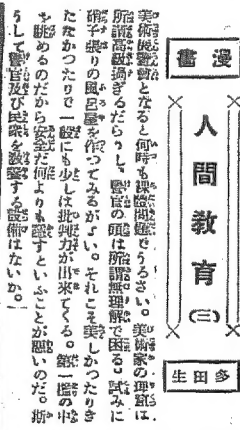 漫畫
人間教育
(三)
多田生
美術展覽會となると何時も裸體問題でうるさい。美術家の理窟は
所謂高級過ぎるだらうし、警官の頭は所謂無理解で困る。試みに
硝子張りの風呂屋を作つてみるがよい。それこそ美しかつたりき
たなかつたりで一般にも少しは批判力が出來てくる。第一檻の中
を眺めるのだから安全だ何よりも隱すといふことが惡いのだ。斯
うして警官及び民衆を教養する設備はないか。